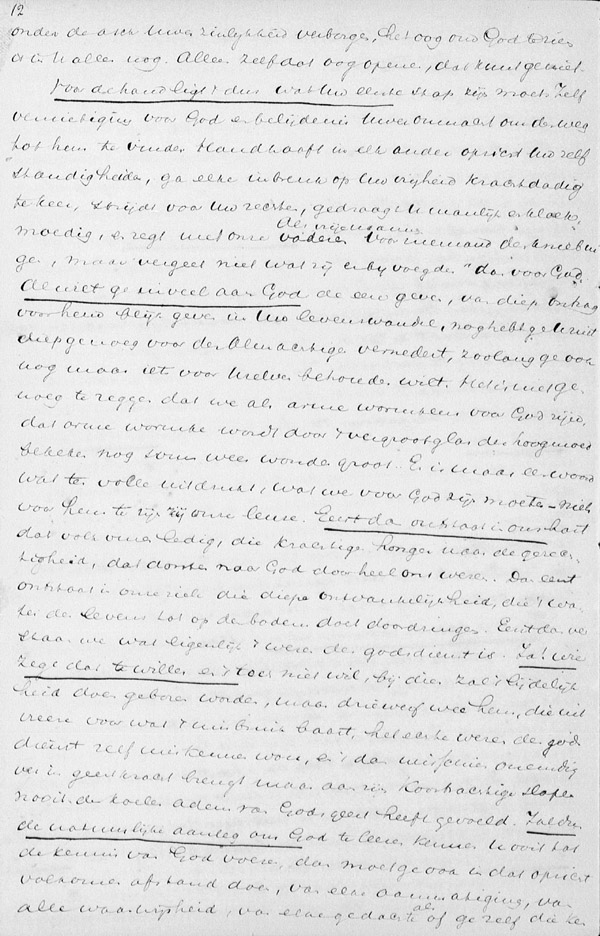 12
onder de asch Uwer zinlijkheid verborgen, het oog om God te zien
is in U alles nog. Alleen zelf dat oog openen, dat kunt ge niet.
Voor de hand ligt dus wat Uw eerste stap zijn moet. Zelf
vernietiging voor God en belijdenis Uwer onmacht om den weg
tot hem te vinden. Handhaaft in elk ander opzicht Uw zelf
standigheid, ga elke inbreuk op Uw vrijheid krachtdadig
te keer, strijdt voor Uw rechten, gedraagt U manlijk en kloek,
moedig, en zegt met onze vaderen voor niemand de knie buigen
, maar vergeet niet wat zij erbij voegden "dan voor God"
Al niet genoeg aan God de eer geven, van diep ontzag
voor hem blijk geven in Uw levenswandel, nog hebt ge U niet
diep genoeg voor den Almachtige vernedert, zoolang ge ook
nog maar iets voor Uzelven behouden wilt. Het is niet ge
noeg te zeggen dat we als arme wormkens voor God zijn,
dat arme wormke wordt door 't vergrootglas der hoogmoed
bekeken nog soms weer wonder groot. Er is maar een woord
wat ten volle uitdrukt, wat we voor God zijn moeten - niets
voor hem te zijn zij onze leuze. Eerst dan ontstaat in ons hart
dat vol verlangen ledig, die krachtige honger naar de gerech
tigheid, dat dorsten naar God door heel ons wezen. Dan eerst
ontstaat in onze ziel die diepe ontvankelijkheid, die 't wa
ter des levens tot op de bodem doet doordringen. Eerst dan ver
staan we wat eigenlijk 't wezen der godsdienst is. Ja! wie
zegt dat te willen en 't toch niet wil, bij dien zal 't lijdelijk
heid doen geboren worden, maar driewerf wee hem, die uit
vreeze voor wat 't misbruik baart, het eerste wezen der gods
dienst zelf miskennen wou, en 't dan misschien onwendig
in geestkracht brengt maar aan zijn koortsachtige slapen
nooit de koele adem van Gods geest heeft gevoeld. Zal dus
de natuurlijke aanleg om God te leeren kennen U ooit tot
de kennis van God voeren, dan moet ge ook in dat opzicht
volkomen afstand doen, van elke aanmatiging, van
alle waanwijsheid, van elke gedachte als of ge zelf die ken